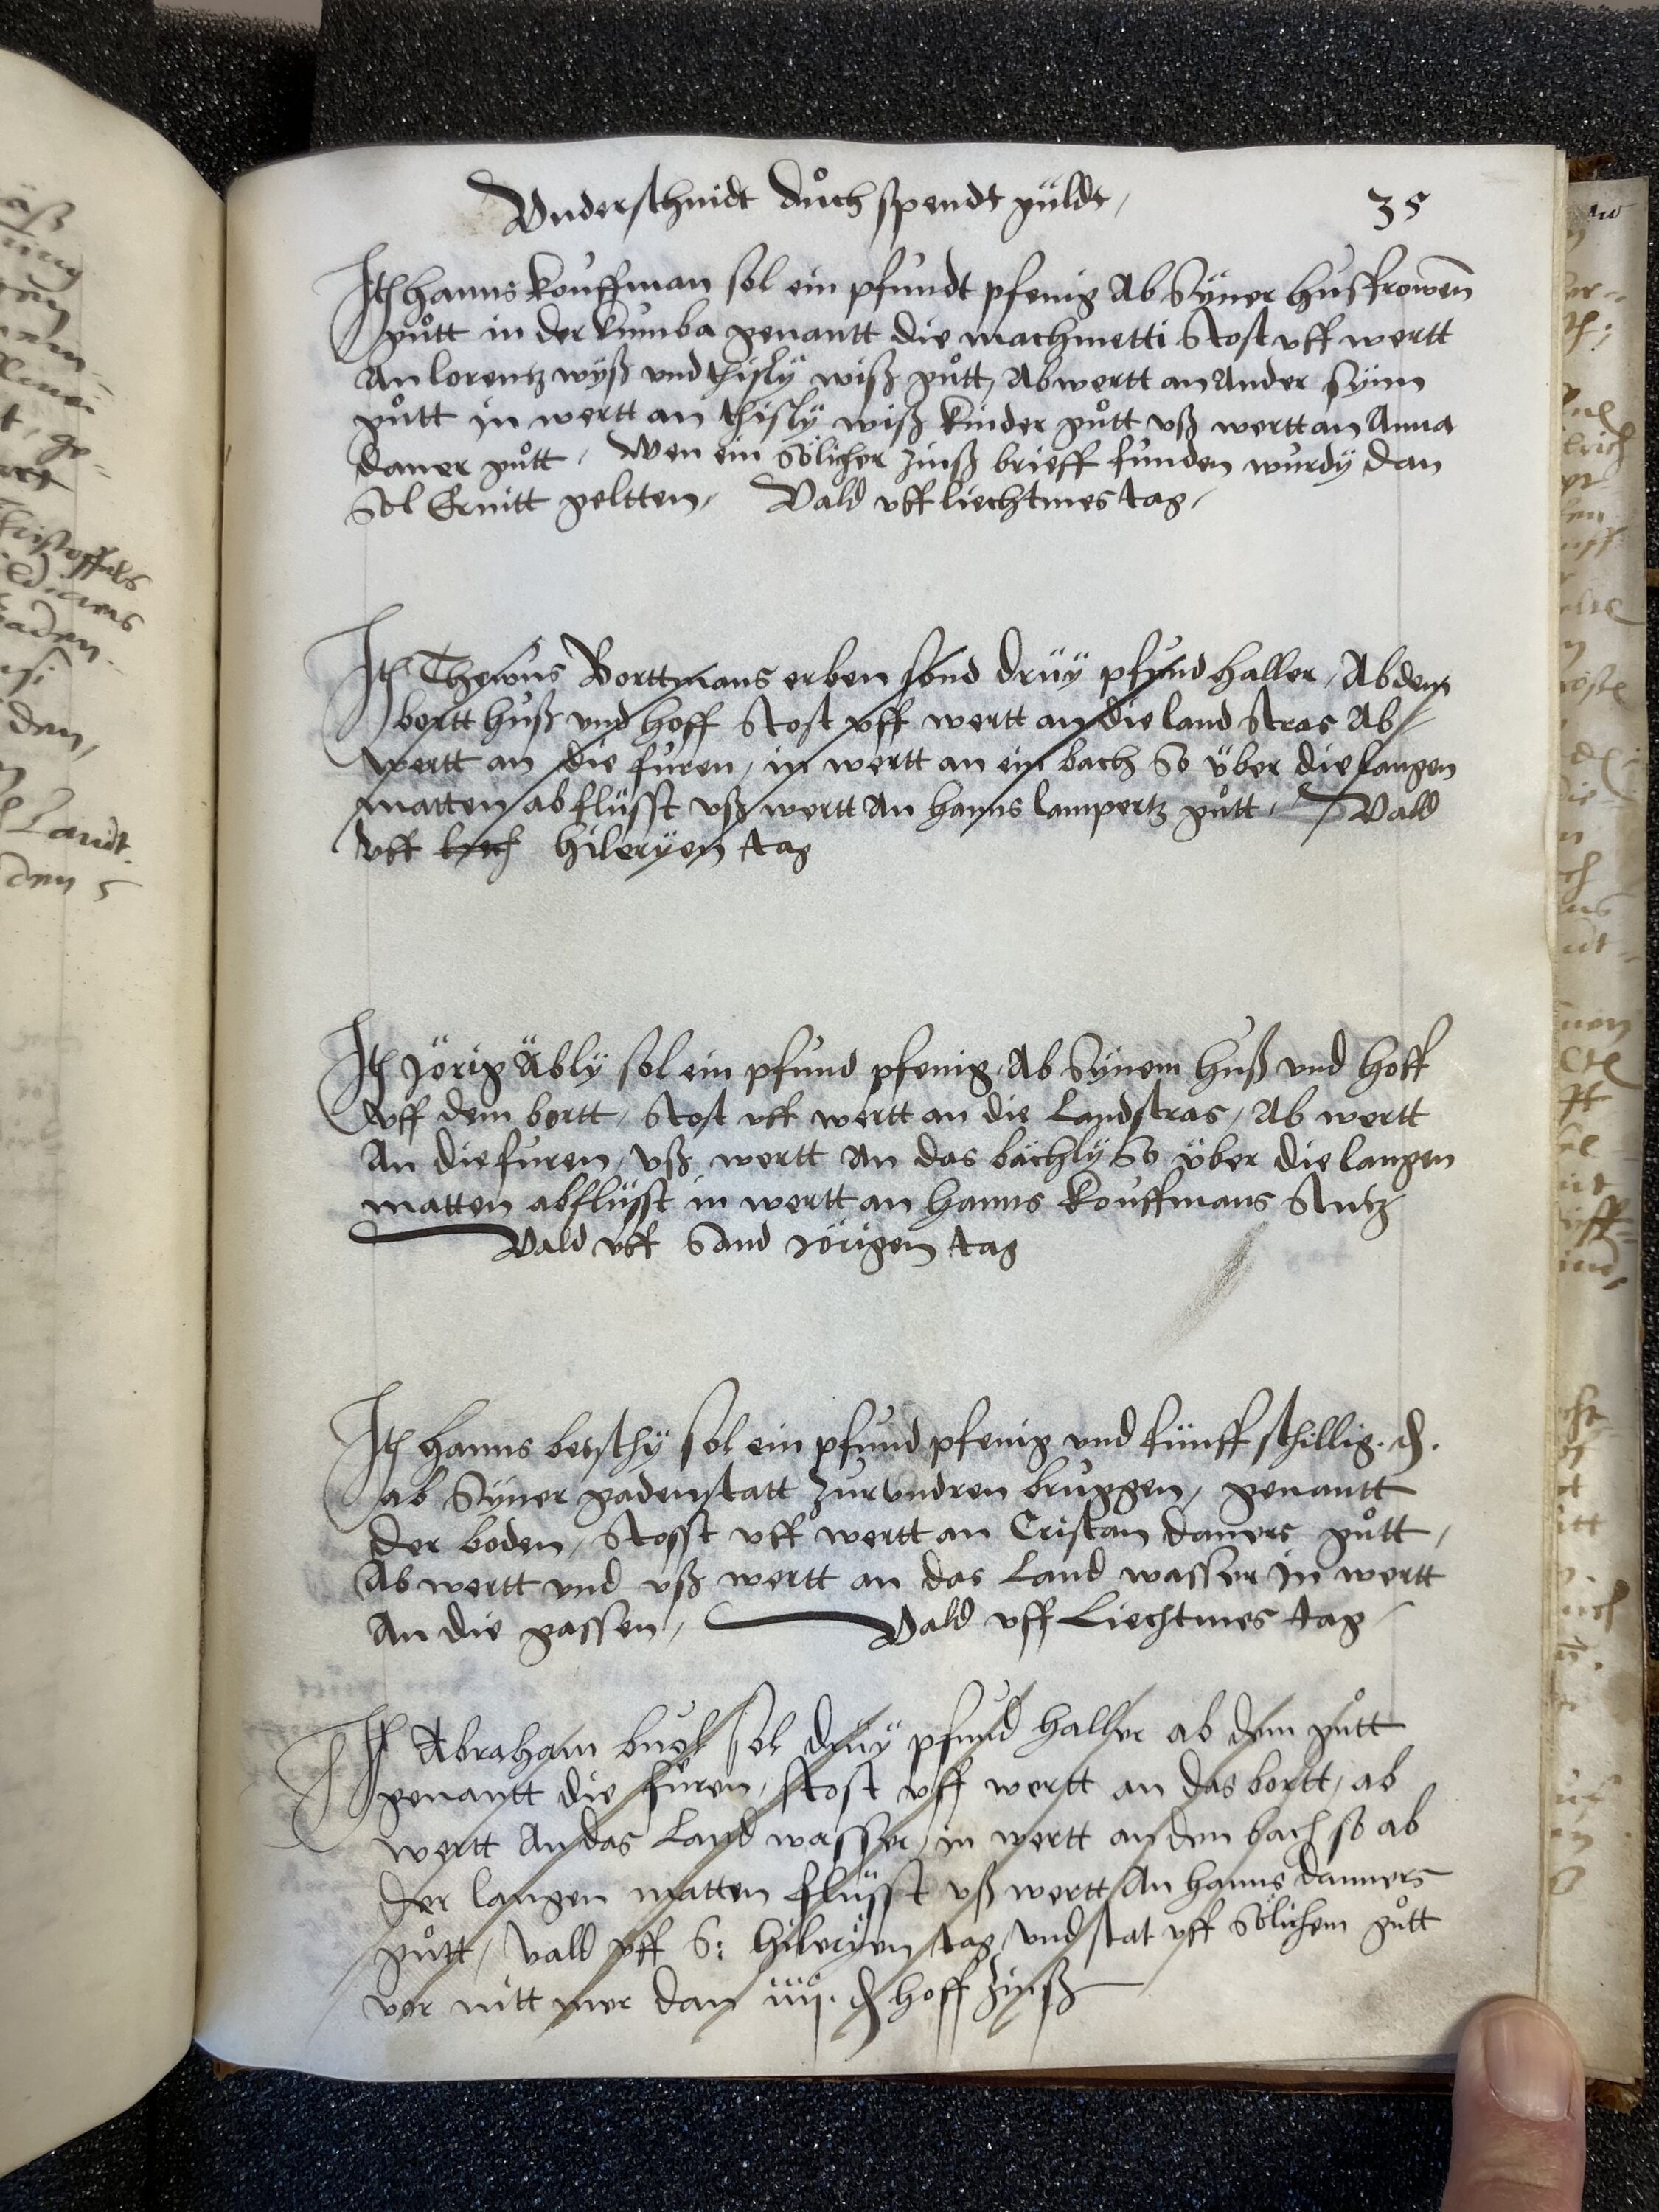 Underschnidt duͦch spendt güldt, 35
Itm hanns kouffman sol ein pfundt pfenig Ab Syner husfrowen
guͦtt in der kumba genantt die machmetti Stost uff wertt
An lorentz wyß und thisly wiß guͦtt, Abwertt an Ander synn
guͦtt in wertt an thisly wiß kinder guͦtt uß wertt an Anna
daner guͦtt, Wen ein Sölicher zinß brieff funden wurdy dan
Sol Er nitt geltten, Vald uff liechtmes tag,
Itm Thewus Borttmans erben sönd drüy pfund haller, Ab dem
bortt huß und hoff Stost uff wertt an die land stras Ab
wertt an die furen, in wertt an ein bach So über die langen
matten abflüsst uß wertt An hanns lampertz guͦtt, Vald
uff hileryen tag
Itm Jörig Äbly sol ein pfund pfenig, Ab Synem huß und hoff
uff dem bortt, Stost uff wertt an die Landstras, Ab wertt
An die furen, uß wertt An das bächly So über die langen
matten abflüsst in wertt an hanns kouffmans Stutz
Vald uff Sand Jörigen tag
Itm hanns betschy sol ein pfund pfenig und fünff schillig. d.
ab Syner gadenstatt zur undren bruggen, genantt
der boden, Stosst uff wertt an Cristan daners guͦtt,
Ab wertt und uß wertt an das Land wasser in wertt
An die gassen, Vald uff Liechtmes tag
Itm Abraham sol drüy pfund haller ab dem guͦtt
genantt die furen, stost uff wertt an das bortt, ab
wertt An das Land wasser, in wertt an den bach so ab
der langen matten flüsst uß wertt An hanns danners
guͦtt, vald uff S: hileryen tag, und stat uff Sölichem guͦtt
vor nitt mer dan iiij. d hoff zinß